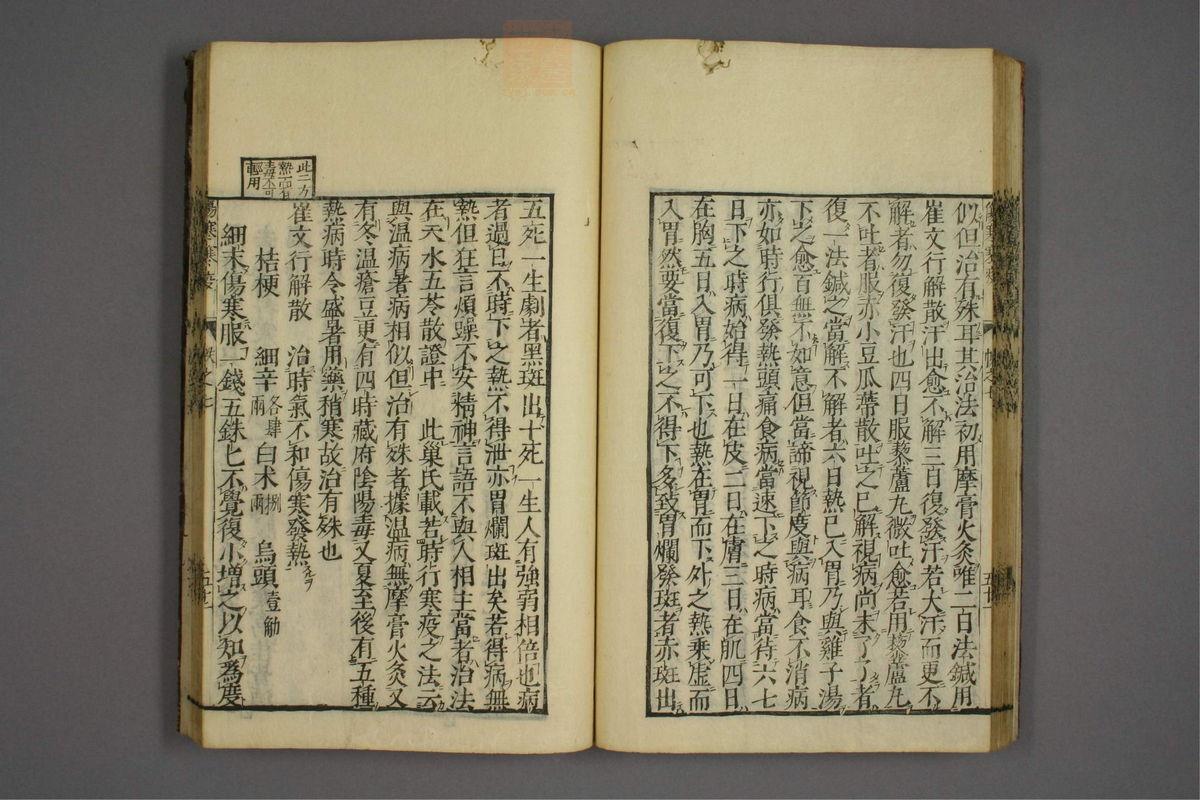 似但治有殊耳其治法初用摩膏火灸唯二日法鍼用
崔文行解散汗出愈不解三日復發汗若大汗而更不
解者勿復發汗也四日服藜蘆丸微吐愈若用藜蘆丸
不吐者服赤小豆瓜蒂散吐之已解視病尚未了了者
復一法鍼之當解不解者六日熱已入胃乃與雞子湯
下之愈百無不如意但當諦視節度與病耳食不消病
亦如時行俱發熱頭痛食病當速下之時病當待六七
日下之時病始得一日在皮二日在膚三日在肌四日
在胸五日入胃乃可下也熱在胃而下外之熱乘虛而
入胃然要當復下之不得下多致胃爛發斑者赤斑出
五死一生劇者黑斑出十死一生人有強弱相倍也病
者過日不時下之熱不得泄亦胃爛斑出矣若得病無
熱但狂言煩躁不安精神言語不與人相主當者治法
在天水五苓散證中 此巢氏載若時行寒疫之法云
與温病暑病相似但治有殊者據温病無摩膏火灸又
有冬温瘡豆更有四時藏府陰陽毒又夏至後有五種
熱病時令盛暑用藥稍寒故治有殊也
崔文行解散 治時氣不和傷寒發熱
桔梗 細辛各肆兩 白术捌兩 烏頭壹觔
細末傷寒服一錢五銖匕不覺復小增之以知為度
此二方
熱而有
毒不可
輕用